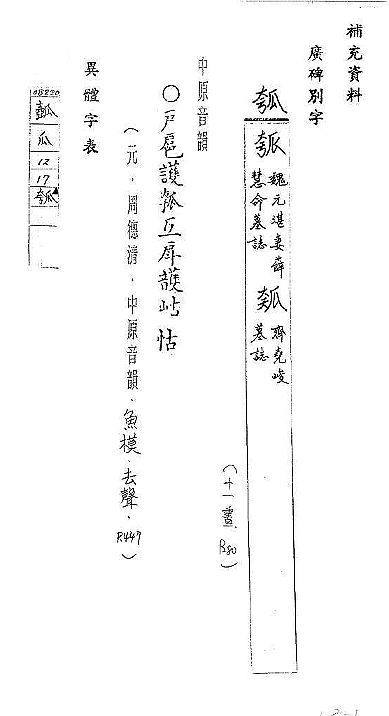 補充資料
廣碑別字
瓠
瓠 魏元湛妻薛慧命墓誌 瓠 齊堯峻墓誌
（十一畫 B80）
中原音韻
○戶扈護瓠互戽護岵怙
（元．周德清．中原音韻．魚模．去聲．R447）
異體字表
瓜
12
17
瓠